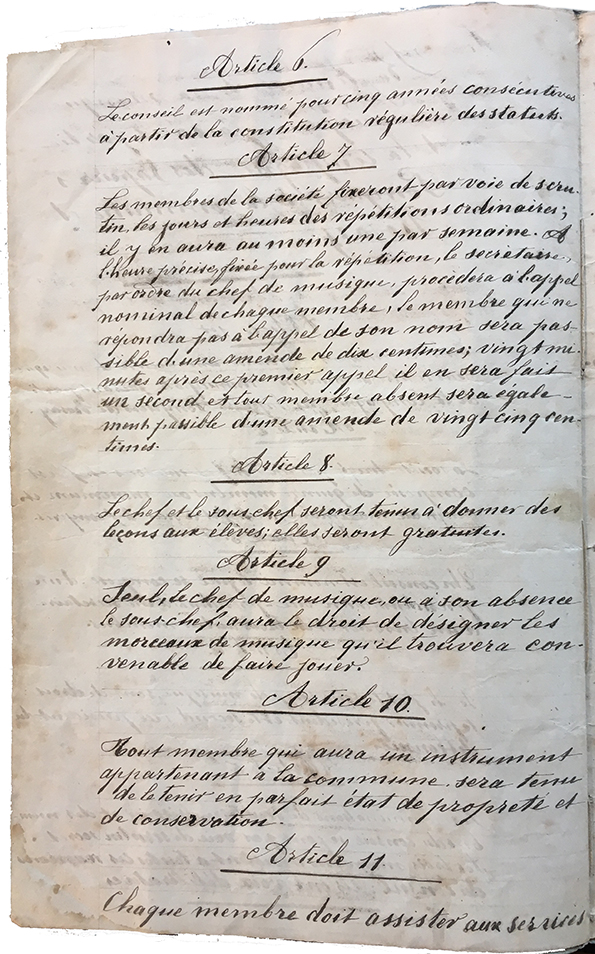 Article 6.
Le conseil est nommé pour cinq années consécutives
à partir de la constitution régulière des statuts.
Article 7
Les membres de la société fixeront par voie de scru-
tin, les jours et heures des répétitions ordinaires;
il y en aura au moins une par semaine. A
l'heure précise fixée pour la répétition, le secrétaire,
par ordre du chef de musique, procédera à l'appel
nominal de chaque membre; le membre qui ne
répondra pas à l'appel de son nom sera pas-
sible d'une amende de dix centimes; vingt mi-
nutes après ce premier appel il en sera fait
un second et tout membre absent sera égale-
ment passible d'une amende de vingt cinq cen-
times.
Article 8.
Le chef et le sous chef seront tenu à donner des
leçons aux élèves; elles seront gratuites.
Article 9
Seul, le chef de musique, ou à son absence
le sous-chef, aura le droit de désigner les
morceaux de musique qu'il trouvera con-
venable de faire jouer.
Article 10.
Tout membre qui aura un instrument
appartenant à la commune, sera tenu
de le tenir en parfait état de propreté et
de conservation.
Article 11.
Chaque membre doit assister aux services